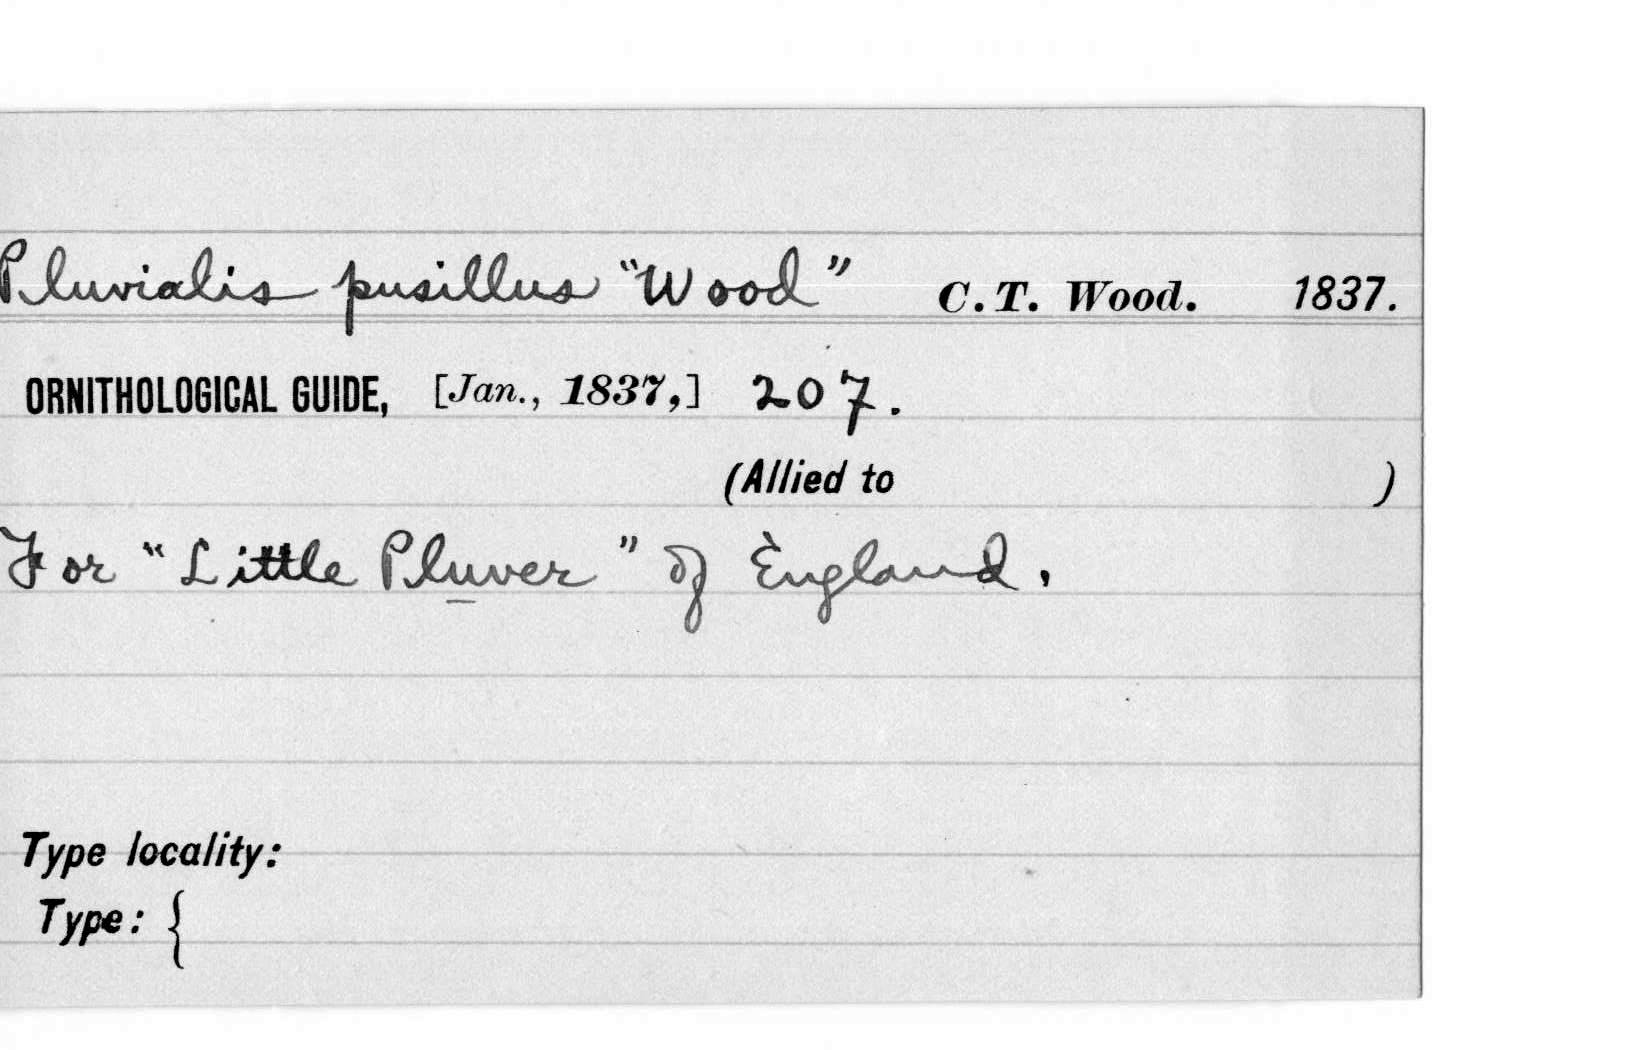 Pluvialis pusillus "Wood" C.T. Wood. 1837.
ORNITHOLOGICAL GUIDE, [Jan., 1837,] 207.
(Allied to )
For "Little Pluver" of England.
Type locality:
Type: {